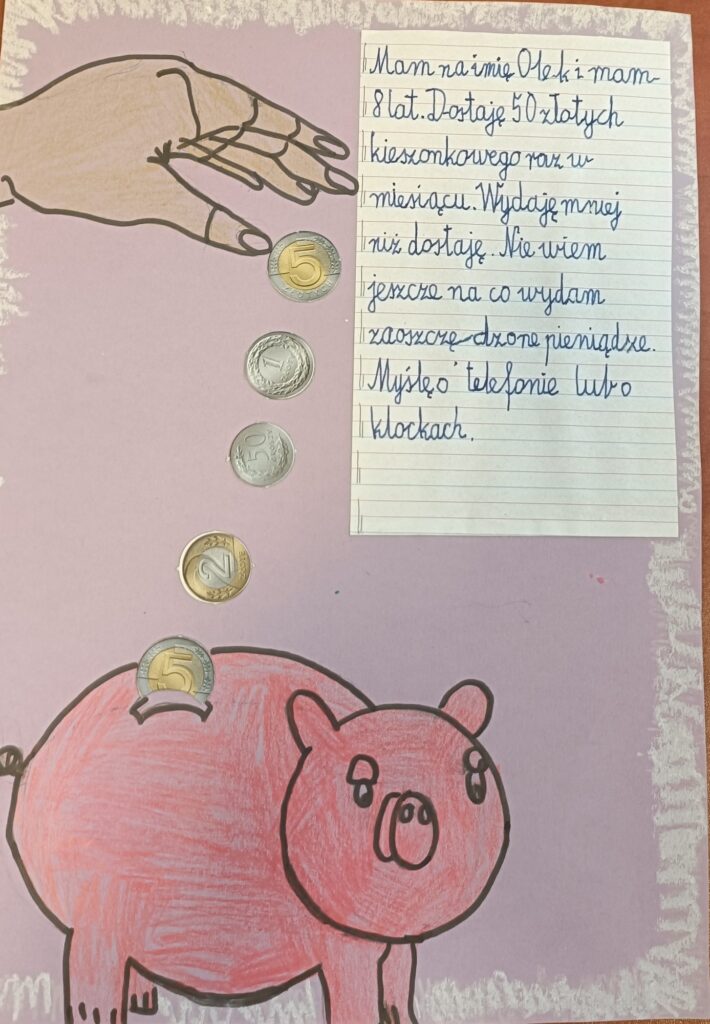 Mam na imię Olek i mam
8 lat. Dostaję 50 złotych
kieszonkowego raz w
miesiącu. Wydaję mniej
niż dostaję. Nie wiem
jeszcze na co wydam
zaoszczę-dzone pieniądze.
Myślę o telefonie lub o
klockach.
5
1
50
2
5